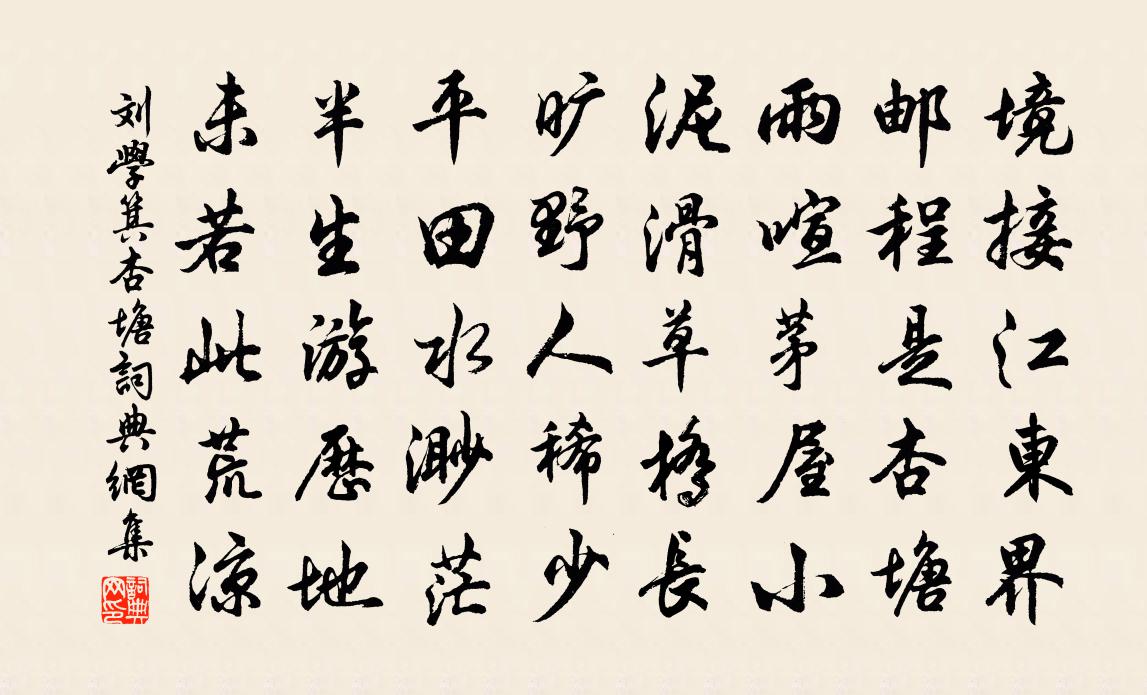 境接江東界
邮程是杏塘
雨喧茅屋小
泥滑草橋長
旷野人稀少
平田水渺茫
半生游歷地
未若此荒凉
刘學箕杏塘詞典網集
詞典网印